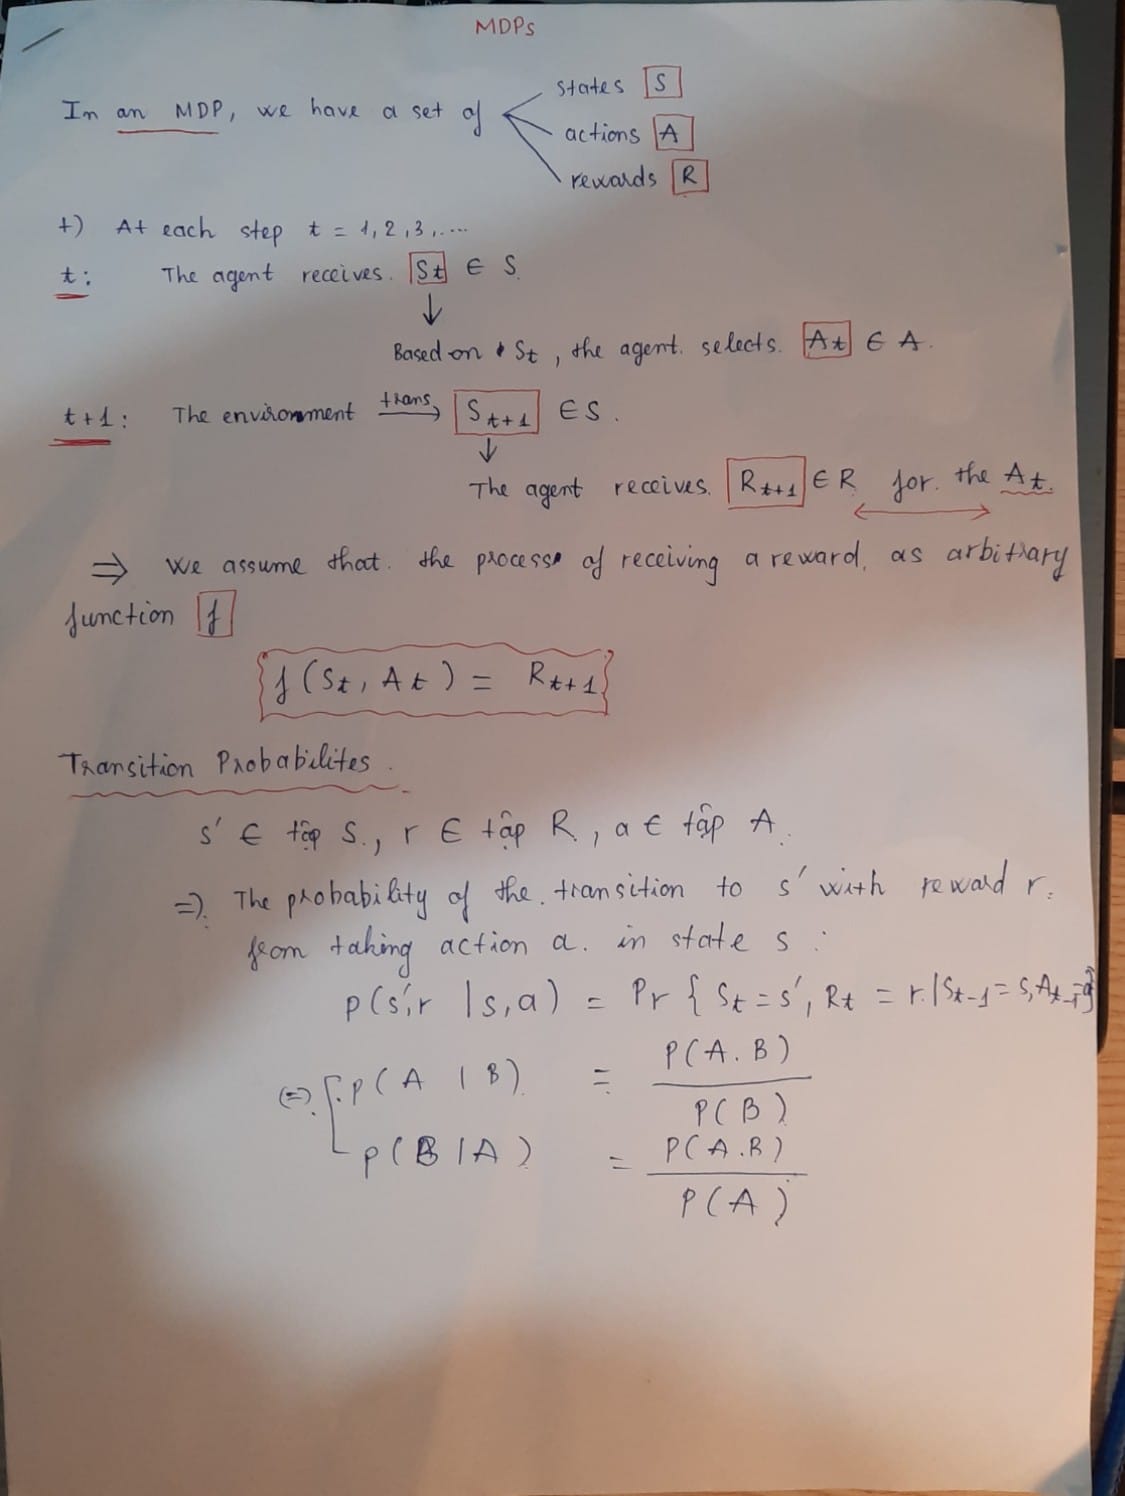 MDPs
In an MDP, we have a set of
states S
actions A
rewards R
+) At each step t = 1, 2, 3, ....
t: The agent receives. St ∈ S.
↓
Based on St, the agent. selects. At ∈ A.
t+1: The environment trans→ St+1 ∈ S.
↓
The agent receives. Rt+1 ∈ R for. the At.
⇒ We assume that. the process of receiving a reward. as arbitrary
function f
f(St, At) = Rt+1
Transition Probabilites.
s' ∈ tập S., r ∈ tập R, a ∈ tập A.
⇒). The probability of the. transition to s' with reward r.
from taking action a. in state s :
p(s', r | s, a) = Pr { St = s', Rt = r. | St-1 = s, At-1 = a }
(=). p(A | B). = P(A.B) / P(B)
p(B | A) = P(A.B) / P(A)